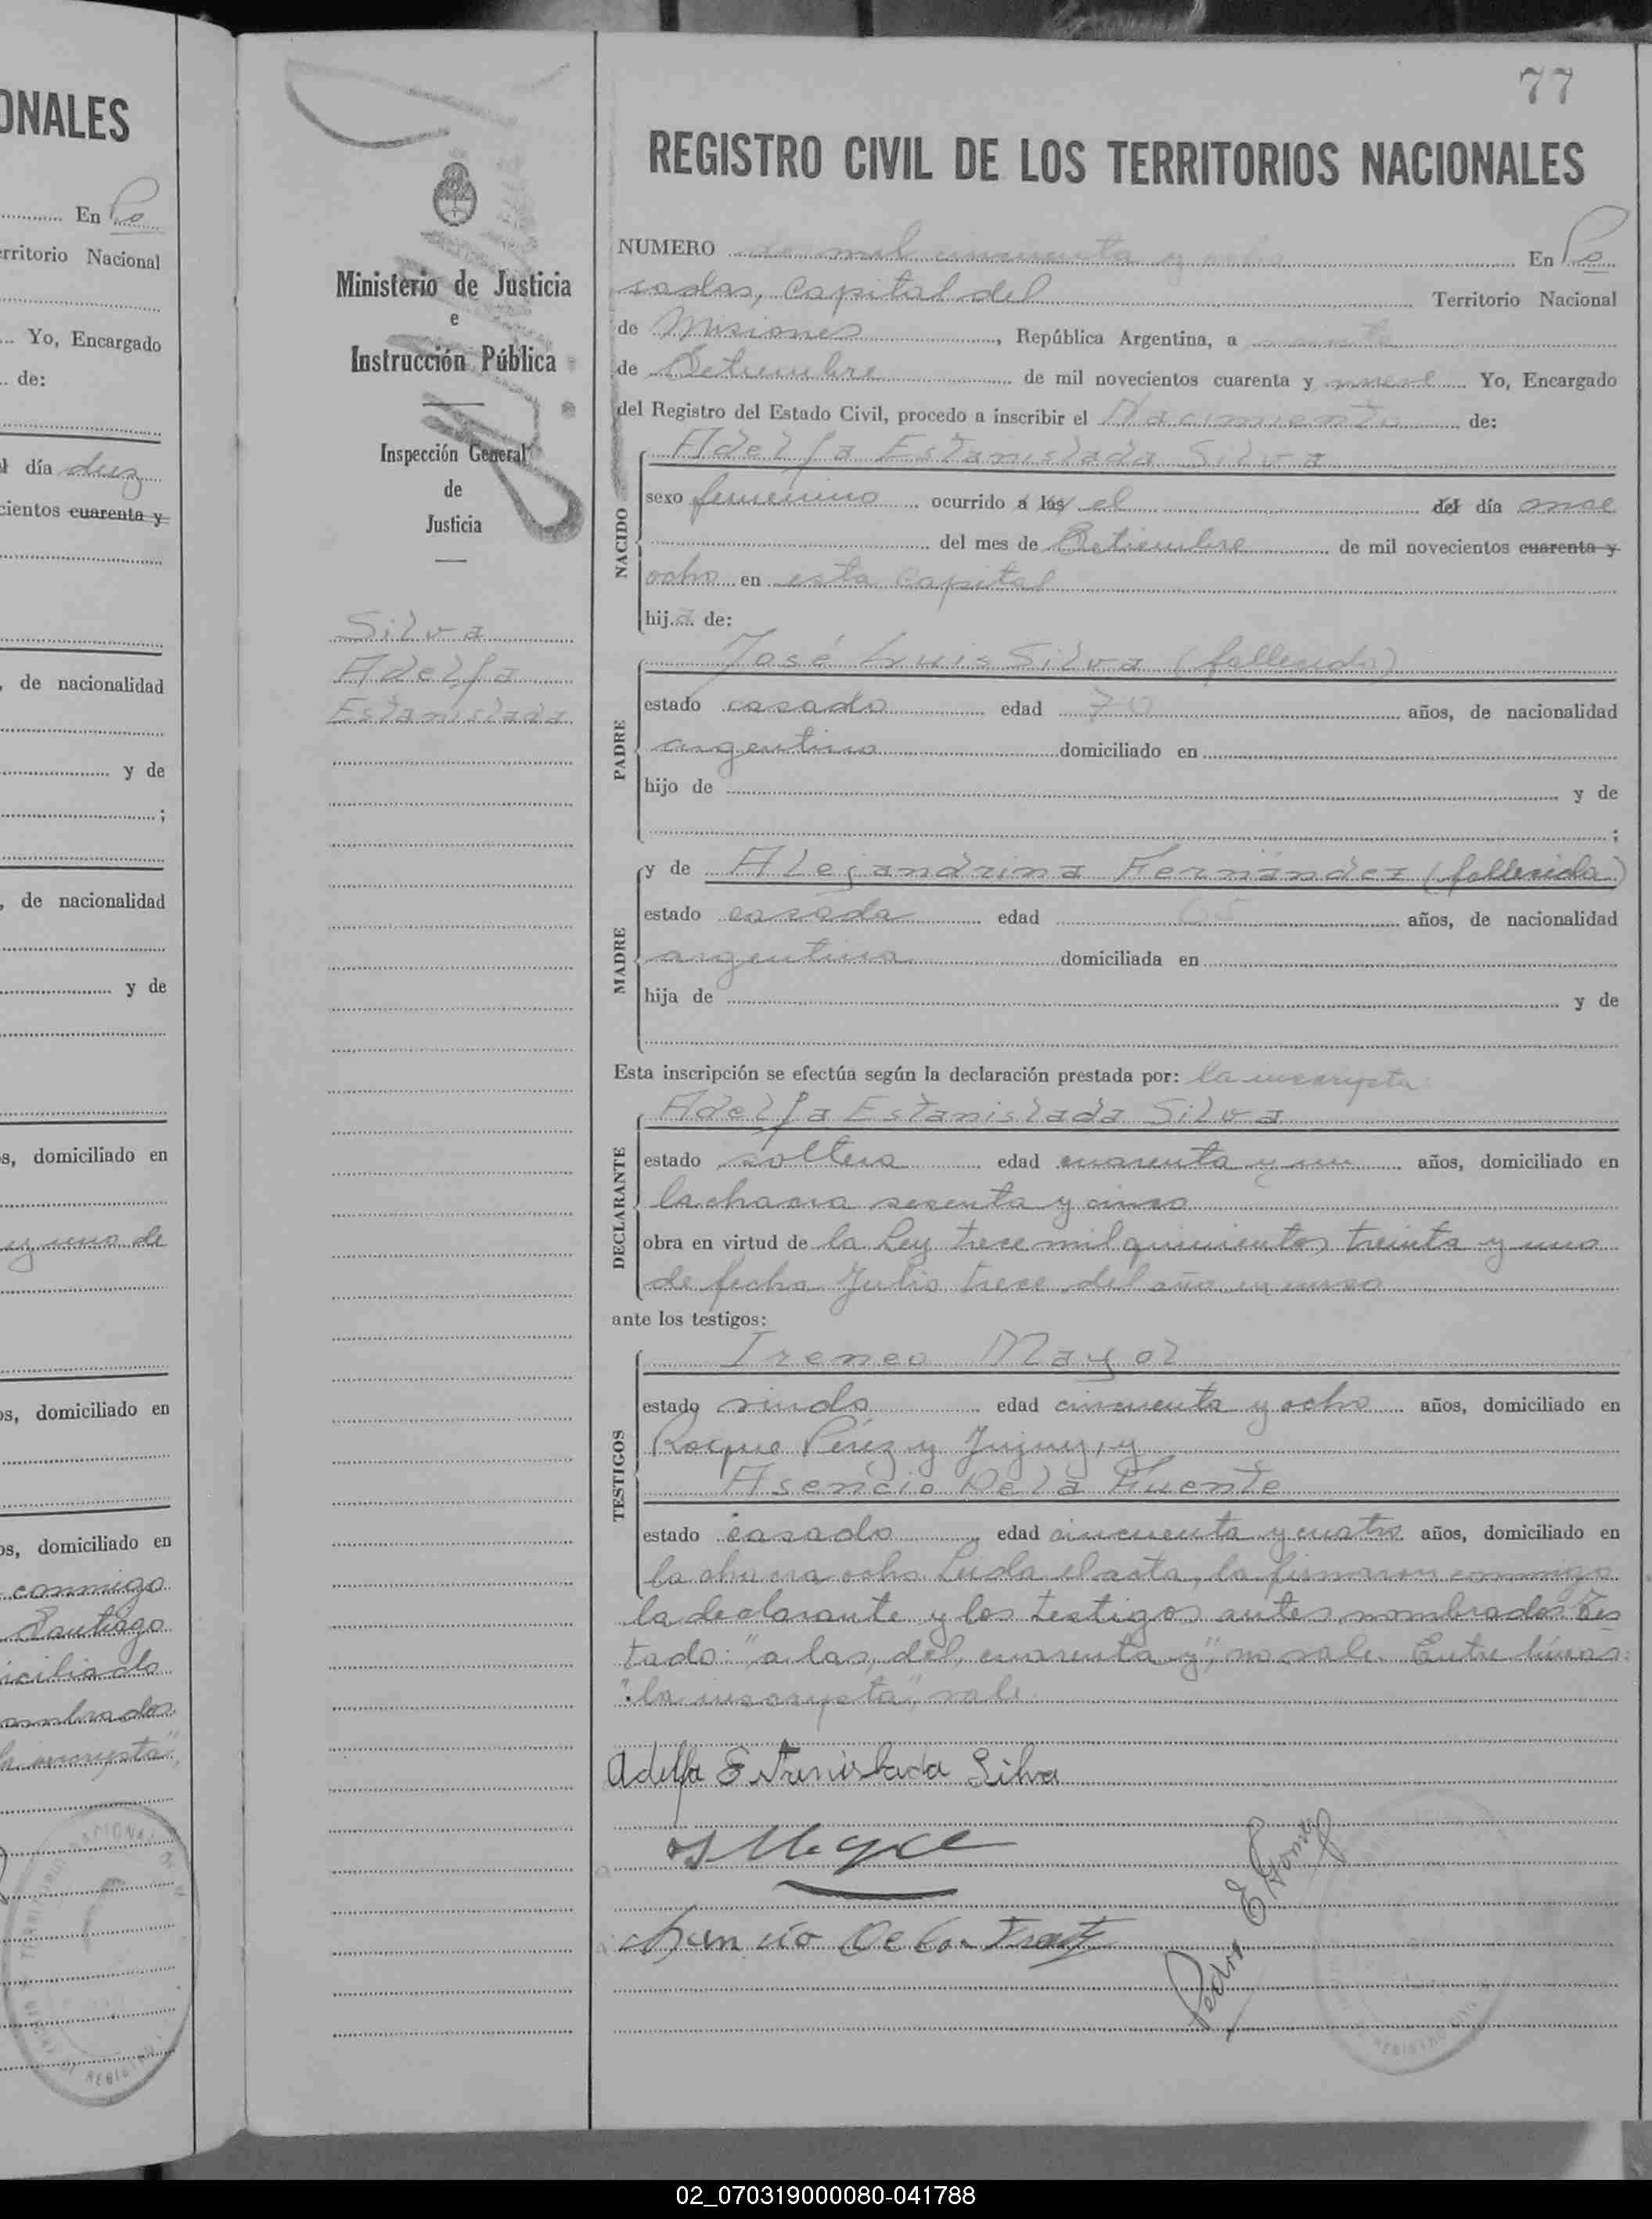 ONALES
En Po
erritorio Nacional
Yo, Encargado
de:
l día diez
cientos cuarenta y
, de nacionalidad
y de
;
, de nacionalidad
y de
s, domiciliado en
y uno de
os, domiciliado en
os, domiciliado en
conmigo
Santiago
iciliado
ombrados
Ministerio de Justicia
e
Instrucción Pública
Inspección General
de
Justicia
Silva
Adelfa
Estanislada
77
REGISTRO CIVIL DE LOS TERRITORIOS NACIONALES
NUMERO dos mil cincuenta y ocho En Po
sadas, Capital del Territorio Nacional
de Misiones, República Argentina, a
de Setiembre de mil novecientos cuarenta y nueve Yo, Encargado
del Registro del Estado Civil, procedo a inscribir el Nacimiento de:
NACIDO
Adelfa Estanislada Silva
sexo femenino ocurrido a las el del día once
del mes de Setiembre de mil novecientos cuarenta y
ocho en esta Capital
hija de:
PADRE
José Luis Silva (fallecido)
estado casado edad 70 años, de nacionalidad
argentino domiciliado en
hijo de y de
;
MADRE
y de Alejandrina Fernández (fallecida)
estado casada edad años, de nacionalidad
argentina domiciliada en
hija de y de
Esta inscripción se efectúa según la declaración prestada por: la inscripta
DECLARANTE
Adelfa Estanislada Silva
estado soltera edad cuarenta y un años, domiciliado en
la chacra sesenta y cinco
obra en virtud de la Ley trece mil quinientos treinta y uno
de fecha Julio trece del año en curso
ante los testigos:
TESTIGOS
Ireneo Mayol
estado viudo edad cincuenta y ocho años, domiciliado en
Roque Pérez y Jujuy, y
Asencio De la Fuente
estado casado edad cincuenta y cuatro años, domiciliado en
la chacra ocho Leida el acta, la firmaron conmigo
la declarante y los testigos antes nombrados Tes
tado: "a las, del, cuarenta y", no vale. Entre líneas:
"la inscripta", vale.
Adelfa Estanislada Silva
Asencio De la Fuente
Pedro E Gomez
02_070319000080-041788